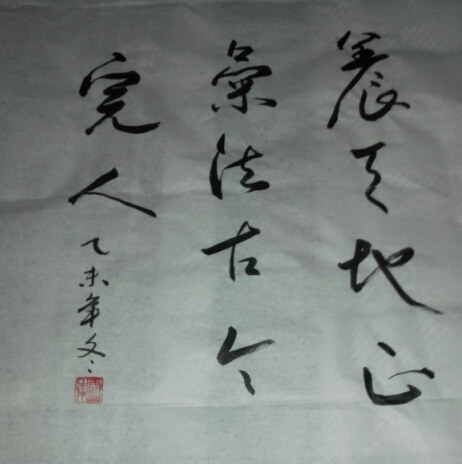 養天地正
氣法古今
完人
乙未年冬